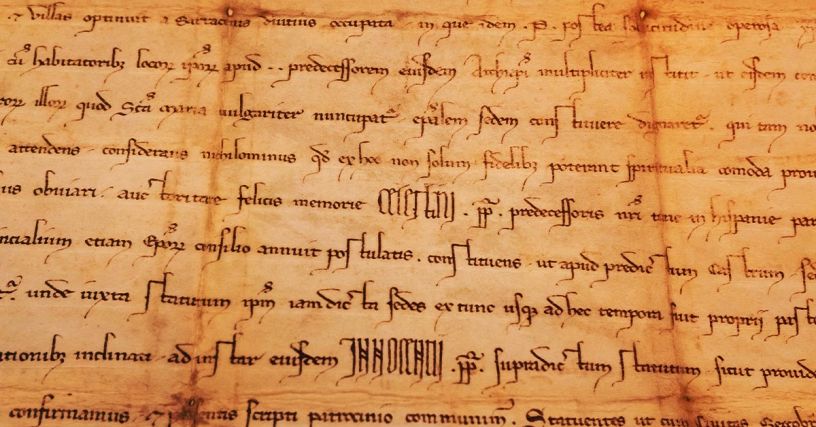 ⁊ villas optinuit a Sarracenis diutius occupata in que idem .P. postea sollicitudine
cū habitatoribꝫ locoꝝ ipsoꝝ apud .. predecessorem eiusdem Archiepi multipliciter institit ut eisdem
illoꝝ quod Scā maria vulgariter nuncupat᷑ epalem sedem constituere dignaret᷑. qui tam
attendens considerans nichilominus qd ex hoc non solum fidelibꝫ poterant spiritualia comoda
obuiari. auctoritate felicis memorie CELESTINI .pp. predecessoris nri tunc in hispanie
etiam Epoꝝ consilio annuit postulatis. constituens ut apud predictum Castrum
unde iuxta statutum ipm iamdicta sedes ex tunc usqꝫ ad hec tempora fuit proprii
inclinati ad instar eiusdem INNOCENCII .pp. supradictum statutum sicut
confirmamus ⁊ presentis scripti patrocinio communimꝰ. Statuentes ut cum Ciuitas